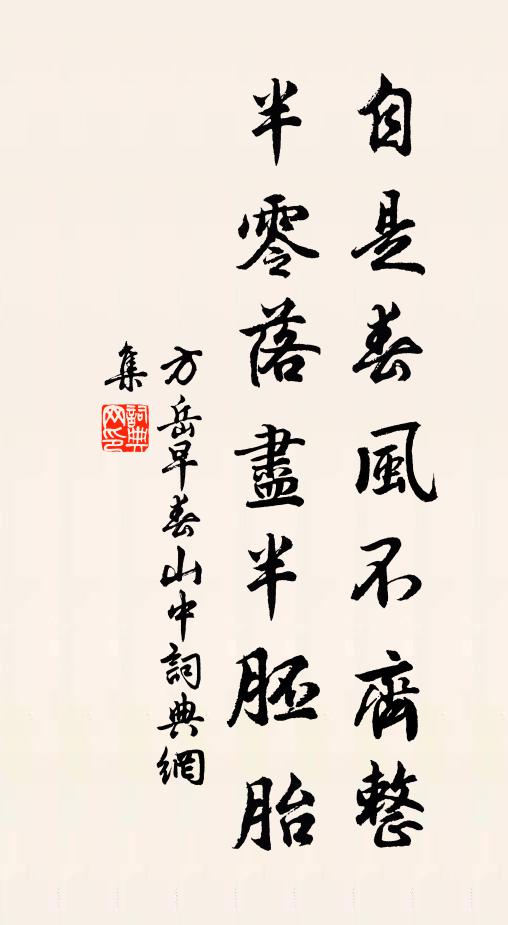 自是春風不齊整
半零落盡半胚胎
方岳早春山中詞典網
集
詞典網印